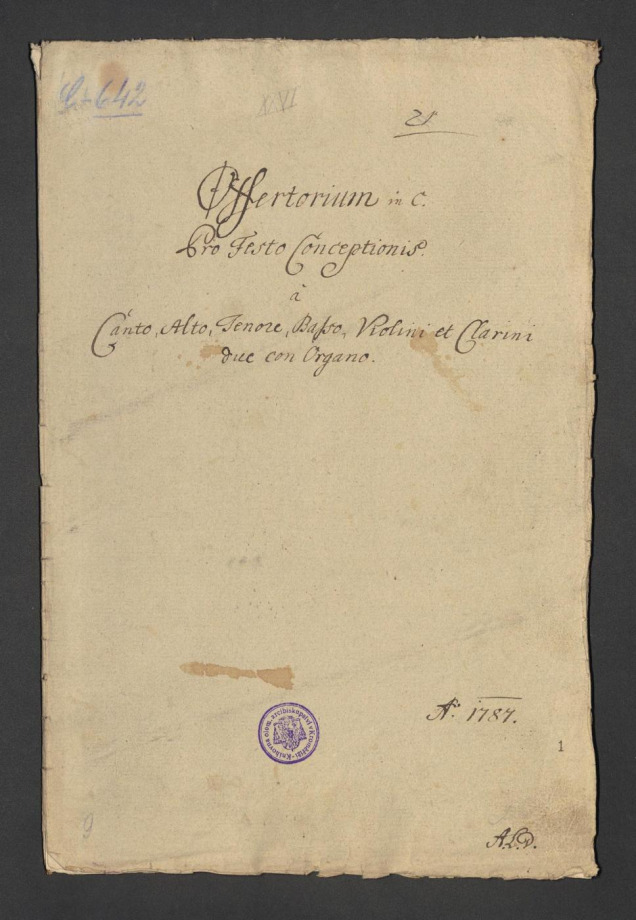 642
XIVI
21.
Offertorium in C.
Pro Festo Conceptionis.
à
Canto, Alto, Tenore, Basso, Violini et Clarini
due con Organo.
Aº. 1787.
Knihovna olom. arcibiskupství v Kroměříži
1
A.L.D.